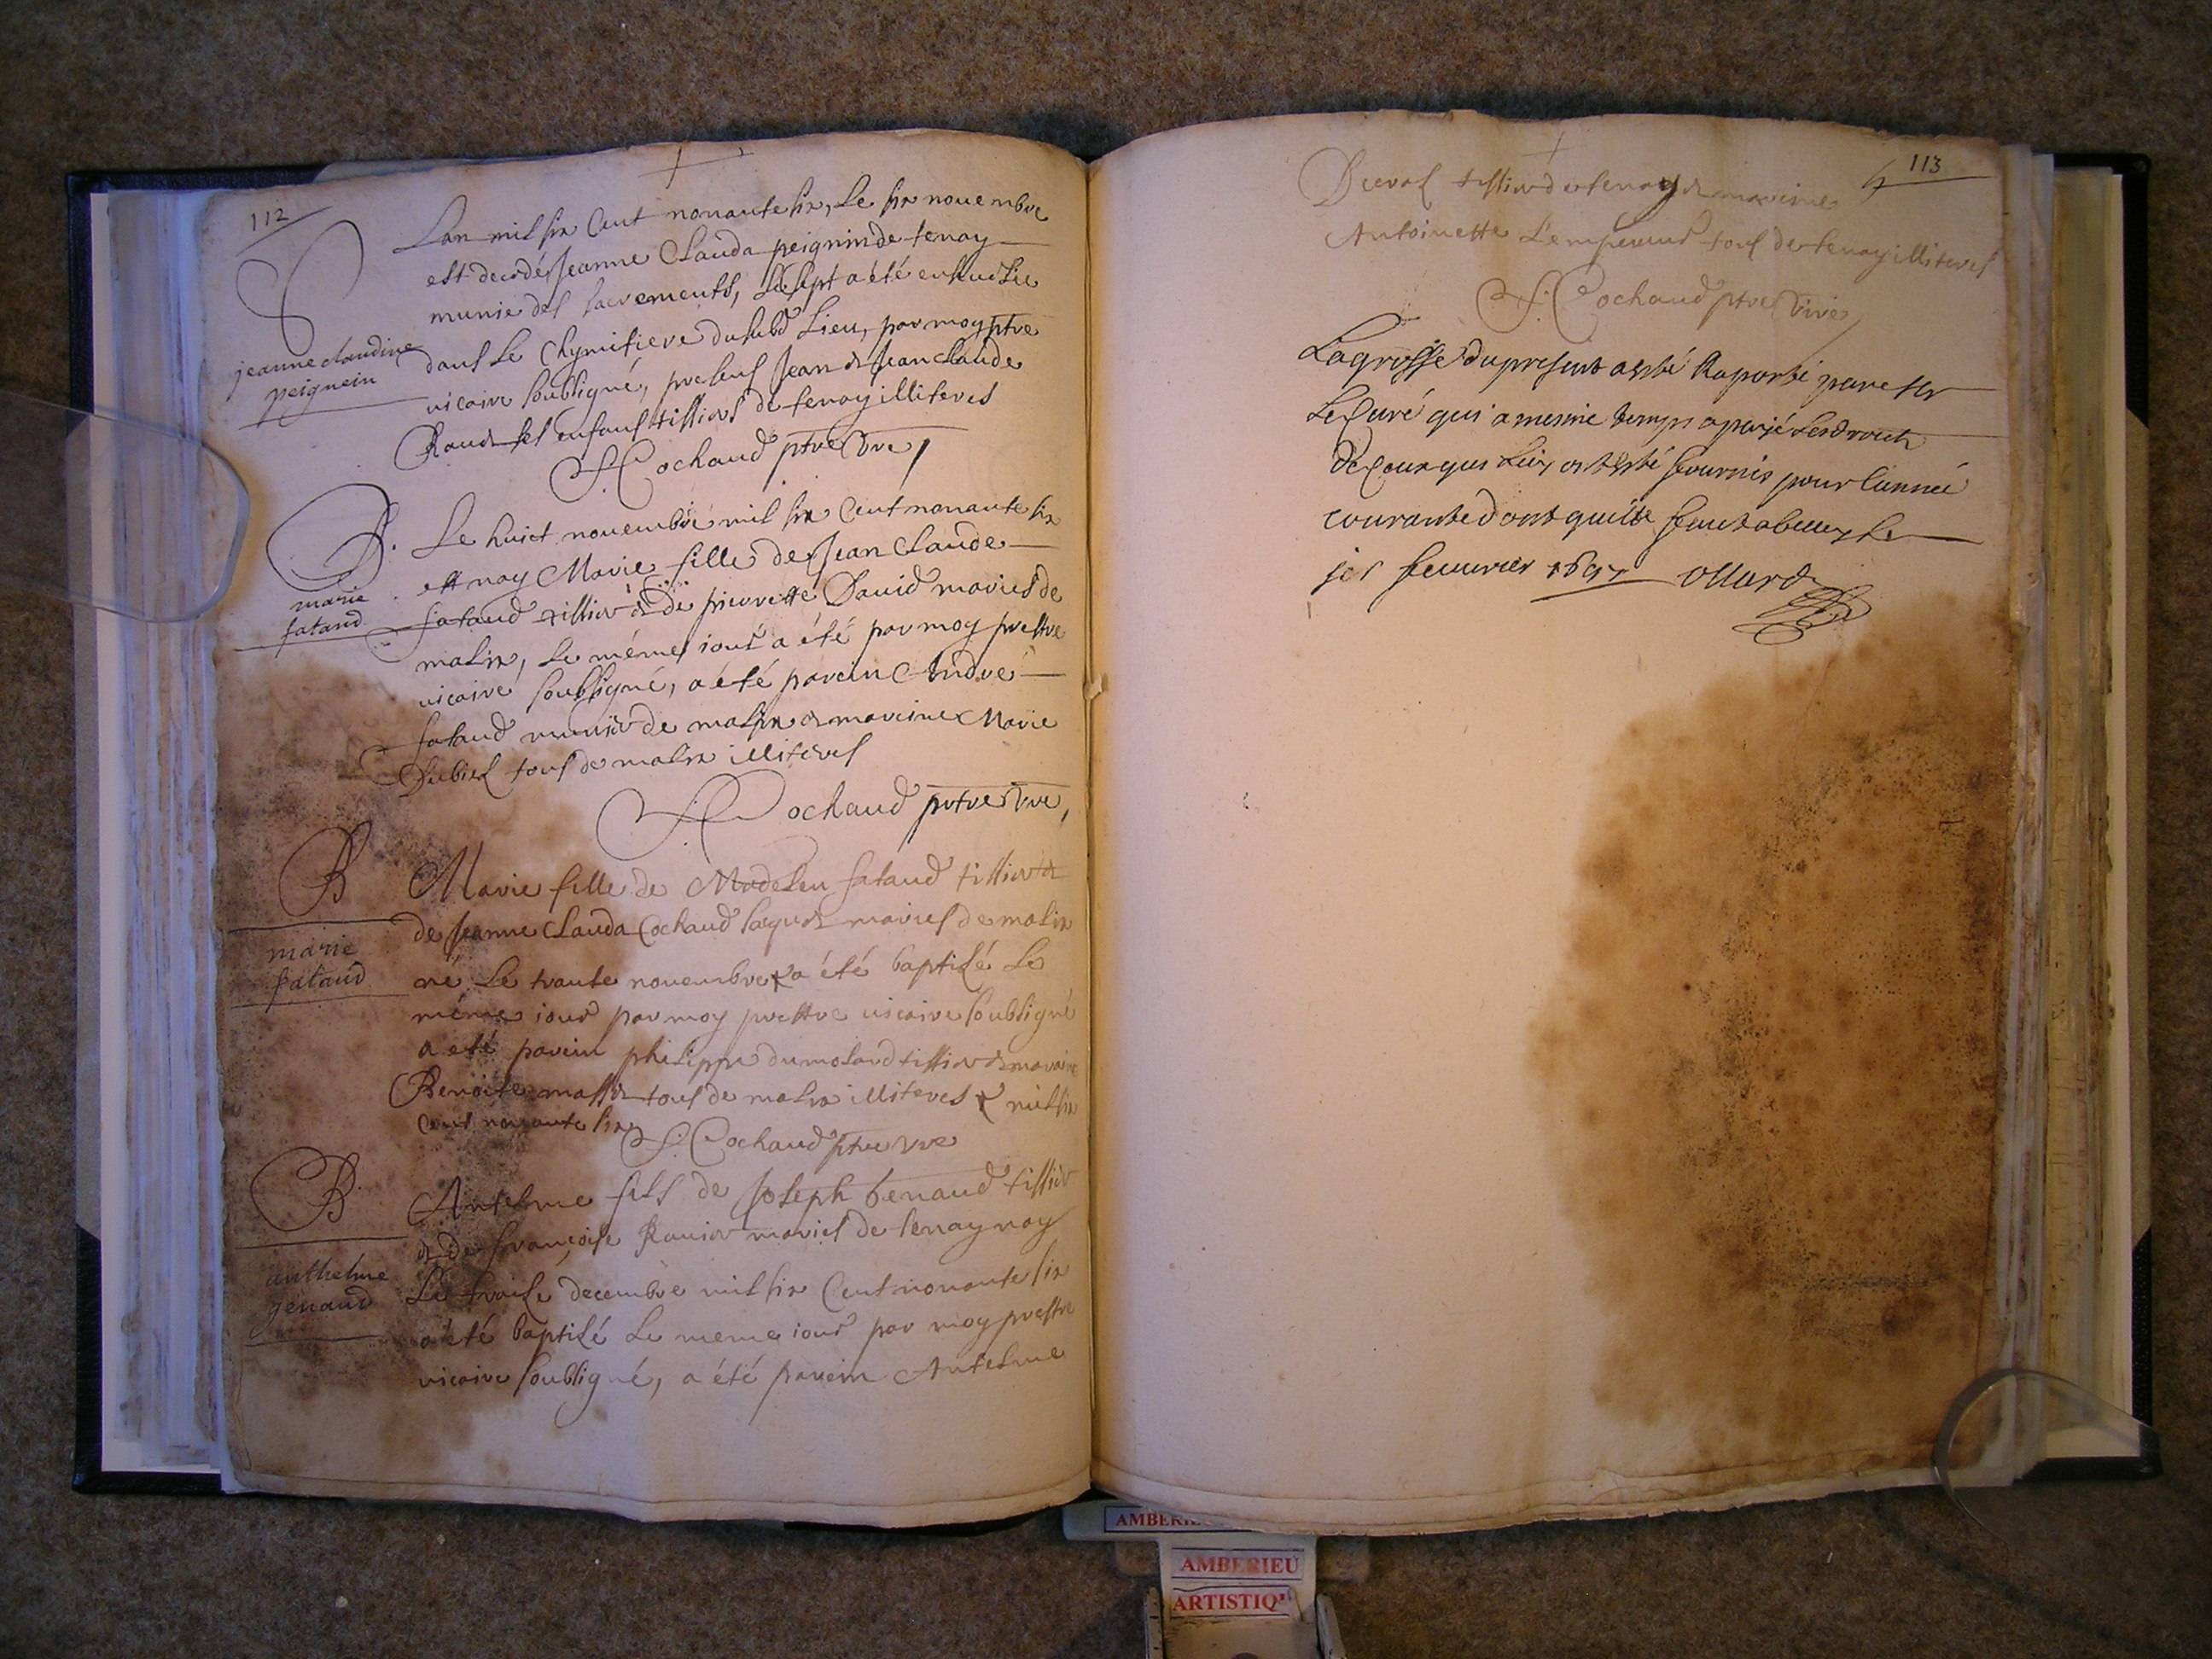 112
Lan mil six Cent nonante six, Le six nouembre
est decedée Jeanne Clauda peignin de tenay
munie des sacrements, Le sept a été enseuelie
dans Le Chymitiere dusubd Lieu, par moy ptre
vicaire soubsigné, presens Jean & Jean claude
Raud ses enfans tissiers de tenay illiteres
Cochaud ptre vre
jeanne claudine
peignein
B. Le huict nouembre mil six Cent nonante six
est nay Marie fille de Jean Claude
fataud tissier & de pierrette Dauid mariés de
malix, Le méme iour a été par moy prestre
vicaire soubsigné, a été parein André
fataud munier de malix & mareine Marie
tous de malix illiteres
Cochaud prtre vre,
marie
fataud
B Marie fille de Modeleu fataud tissier &
de Jeanne Clauda Cochaud mariés de malix
né Le trante nouembre a été baptisé Le
méme iour par moy prettre vicaire soubsigné
a eté parein philippe dumolard tissier & maraine
Benoite tous de malix illiteres mil six
Cent nonante six
S. Cochaud ptre vre
marie
fataud
B. Antelme fils de Joseph genaud tissier
& de françoise Rauier mariés de tenay nay
Le traise decembre mil six Cent nonante six
a été baptisé Le meme iour par moy prestre
vicaire soubsigné, a été parein Antelme
anthelme
genaud
113
tissier de tenay & mareine
Antoinette L'empereur tous de tenay illiteres
S. Cochaud ptre vire
La grosse du present a esté Raporté par
Le Curé qui a mesme temps a payé Les droits
de Ceux qui Luy ont esté fournis pour Lannée
courante dont quitte
feuurier 1697 Ollard
AMBERIEU
ARTISTIQ